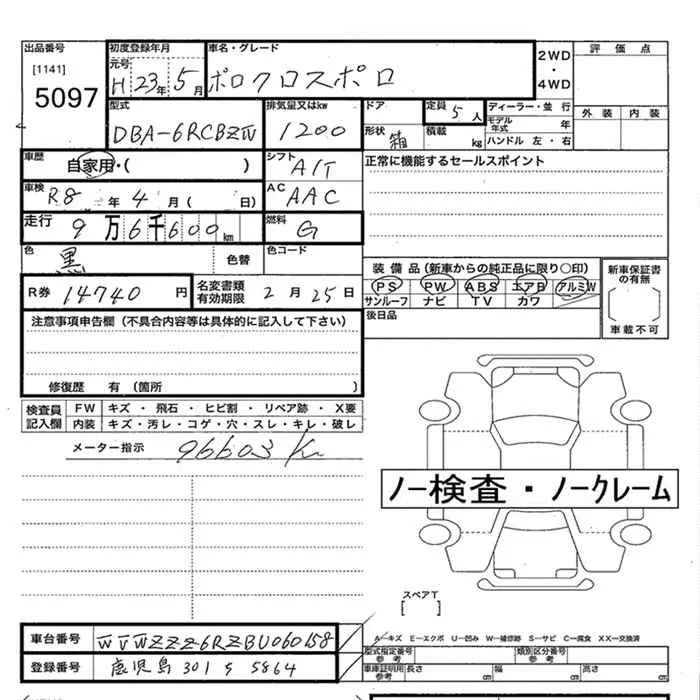 出品番号 初度登録年月 車名・グレード 2WD・4WD 評価点
[1141] 元号
5097 H23年5月 ポロクロスポロ
型式 排気量又はkw ドア 定員 5人 ディーラー・並行 外装 内装
DBA-6RCBZW 1200 形状 箱 積載 kg モデル年式 年
ハンドル 左・右
車歴 自家用・( ) シフト A/T 正常に機能するセールスポイント
車検 R8年4月( 日) AC AAC
走行 9万6千600km 燃料 G
色 黒 色替 色コード
装備品(新車からの純正品に限り○印) 新車保証書の有無
R券 14740円 名変書類有効期限 2月25日 PS PW ABS エアB アルミW
サンルーフ ナビ TV カワ
注意事項申告欄(不具合内容等は具体的に記入して下さい) 後日品 車載不可
修復歴 有(箇所 )
検査員記入欄 FW キズ・飛石・ヒビ割・リペア跡・X要
内装 キズ・汚レ・コゲ・穴・スレ・キレ・破レ
メーター指示 96603 K
ノー検査・ノークレーム
スペアT
[ ]
車台番号 WVWZZZ6RZBU060158 A—キズ E—エクボ U—凹み W—補修跡 S—サビ C—腐食 XX—交換済
型式指定番号参考 類別区分番号参考
登録番号 鹿児島 301 す 5864 車庫証明用参考 長さ cm 幅 cm 高さ cm